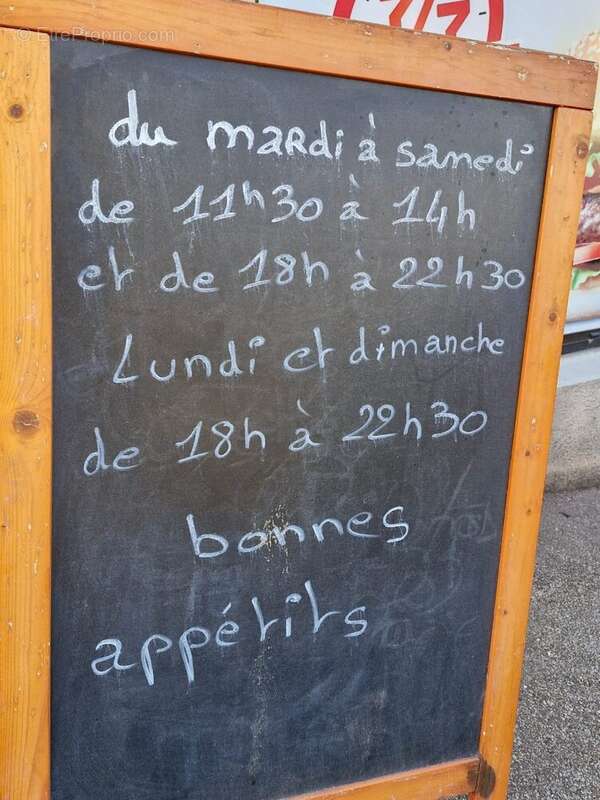 © EtreProprio.com
7/7
du mardi à samedi
de 11h30 à 14h
et de 18h à 22h30
Lundi et dimanche
de 18h à 22h30
bonnes
appétits